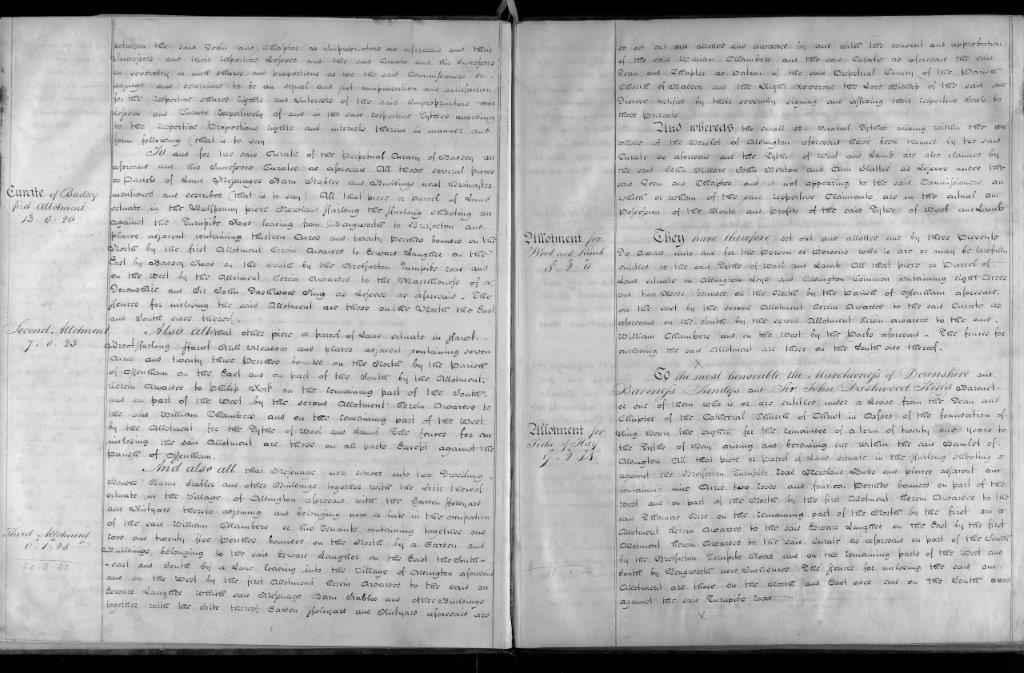 between the said Dean and Chapter as Impropriators as aforesaid and their
Lessees and their respective Lessees and the said Curate and his Successors
in severalty in such shares and proportions as we the said Commissioners do
adjudge and determine to be an equal and just compensation and satisfaction
for the respective shares rights and Interests of the said Impropriators and
Lessees and Curate respectively of and in the said respective Tythes according
to the respective Proportions rights and interests therein in manner and
form following (that is to say)
To and for the said Curate of the Perpetual Curacy of Badsey as
aforesaid and his Successors Curates as aforesaid All those several pieces
or Parcels of Land Messuages Barn Stables and Buildings next hereinafter
mentioned and described (that is to say) All that piece or parcel of Land
Curate of Badsey
first Allotment
13..0..20
situate in the Halfpenny piece furlong the furlong shooting on
against the Turnpike Road leading from Bengworth to Bretforton and
places adjacent containing thirteen Acres and twenty Perches bounded on the
North by the first Allotment herein Awarded to Edward Laugher on the
East by Badsey Road on the South by the Bretforton Turnpike road and
on the West by the Allotment herein Awarded to the Marchioness of
Downshire and Sir John Dashwood King as Lessees as aforesaid The
fences for inclosing the said Allotment are those on the North the East
and South sides thereof
Second Allotment
7..0..23
Also all that other piece or parcel of Land situate in
furlong Mill Meadow and places adjacent containing seven
Acres and twenty three Perches bounded on the North by the Parish
of Offenham on the East and on part of the South by the Allotment
herein Awarded to Philip on the remaining part of the South
and on part of the West by the second Allotment herein Awarded to
the said William Chambers and on the remaining part of the West
by the Allotment for the Tythe of Wool and Lamb The fences for
inclosing the said Allotment are those on all parts Except against the
Parish of Offenham
And also all that Messuage now divided into two Dwelling
Houses Barns Stables and other Buildings together with the Scite thereof
situate in the Village of Aldington aforesaid with the Garden Foldyard
and Rickyard thereto adjoining and belonging now or late in the occupation
Third Allotment
0..1..25
of the said William Chambers or his Tenants containing together one
rood and twenty five Perches bounded on the North by a Garden and
Buildings belonging to the said Edward Laugher on the East the South
East and South by a Lane leading into the Village of Aldington aforesaid
and on the West by the first Allotment herein Awarded to the said
Edward Laugher Which said Messuage Barn Stables and other Buildings
together with the Scite thereof Garden Foldyard and Rickyard aforesaid are
so set out and allotted and awarded by and with the consent and approbation
of the said William Chambers and the said Curate as aforesaid the said
Dean and Chapter as Patron of the said Perpetual Curacy of the Parish
Church of Badsey and the Right Reverend the Lord Bishop of the said
Diocese testified by their severally signing and affixing their respective Seals to
these Presents
And whereas the small or Vicarial Tythes arising within the
whole of the Hamlet of Aldington aforesaid have been claimed by the said
Curate as aforesaid and the Tythe of Wool and Lamb are also claimed by
the said John Millard John and Ann as Lessees under the
said Dean and Chapter and it not appearing to the said Commissioners in
which or whom of the said respective Claimants are in the actual
Possession of the Rents and Profits of the said Tythe of Wool and Lamb
Allotment for
Wool and Lamb
8..2..0
They have therefore set out and allotted and by these Presents
Do Award unto and for the Person or Persons who is are or may be lawfully
entitled to the said Tythe of Wool and Lamb All that piece or Parcel of
Land situate in Aldington Leys and Aldington Common containing eight Acres
and two Roods bounded on the North by the Parish of Offenham aforesaid
on the East by the second Allotment herein Awarded to the said Curate as
aforesaid on the South by the second Allotment herein awarded to the said
William Chambers and on the West by the Parks aforesaid The fences for
inclosing the said Allotment are those on the South side thereof
To the most honorable the Marchioness of Downshire and
Baroness Sandys and Sir John Dashwood King Baronet
or one of them who is or are entitled under a Lease from the Dean and
Chapter of the Cathedral Church of Christ in Oxford of the foundation of
Allotment for
Tithe of Hay
9..2..14
King Henry the eighth for the remainder of a term of twenty one Years to
the Tythe of Hay arising and becoming due within the Hamlet of
Aldington All that piece or Parcel of Land situate in the furlong shooting
against the Bretforton Turnpike Road and places adjacent
containing nine Acres two roods and fourteen Perches bounded on part of the
West and on part of the North by the first Allotment herein Awarded to the
said Thomas on the remaining part of the North by the first
Allotment herein Awarded to the said Edward Laugher on the East by the first
Allotment herein Awarded to the said Curate as aforesaid on part of the South
by the Bretforton Turnpike Road and on the remaining parts of the West and
South by Bengworth new Inclosures The fences for inclosing the said
Allotment are those on the North and East sides and on the South
against the said Turnpike road